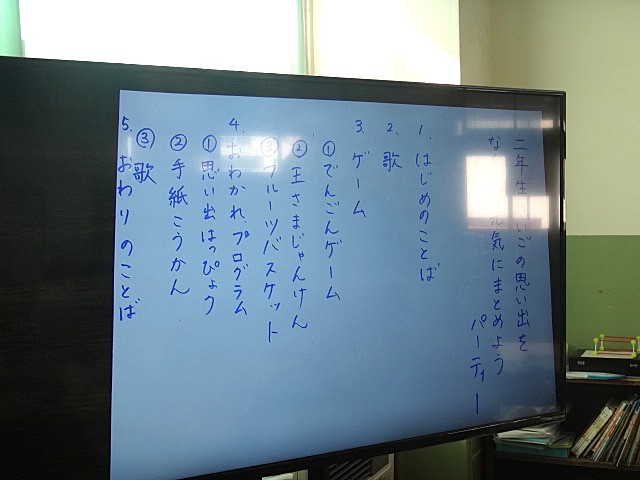 二年生 いごの思い出を
な 元気にまとめよう
パーティー
1. はじめのことば
2. 歌
3. ゲーム
①でんごんゲーム
②王さまじゃんけん
③フルーツバスケット
4. おわかれプログラム
①思い出はっぴょう
②手紙こうかん
③歌
5. おわりのことば